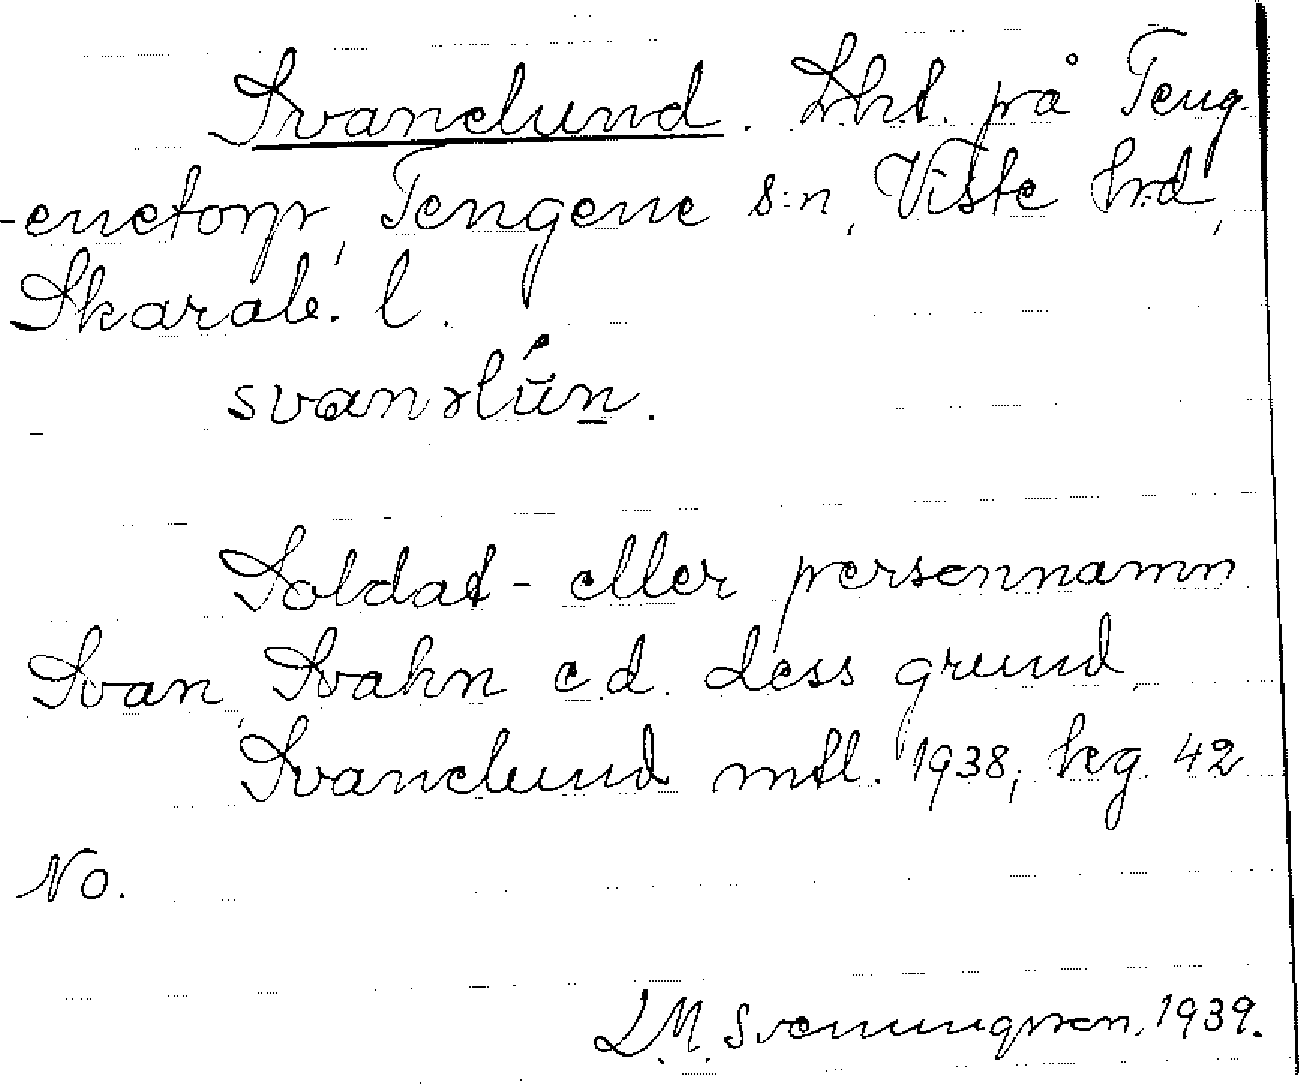 Svanelund. Lht. på Teng-
-enetorp, Tengene s:n, Viste hrd,
Skarab. l.
svanəlún.
Soldat- eller personnamn
Svan, Svahn e.d. dess grund.
Svanelund mtl. 1938, keg 42
No.
L.M. Svenungsson, 1939.